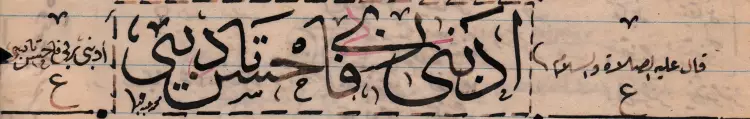 قال عليه الصلاة والسلام
ع
ادبني ربي فاحسن تاديبي
ادبني ربي فاحسن تاديبي
ع